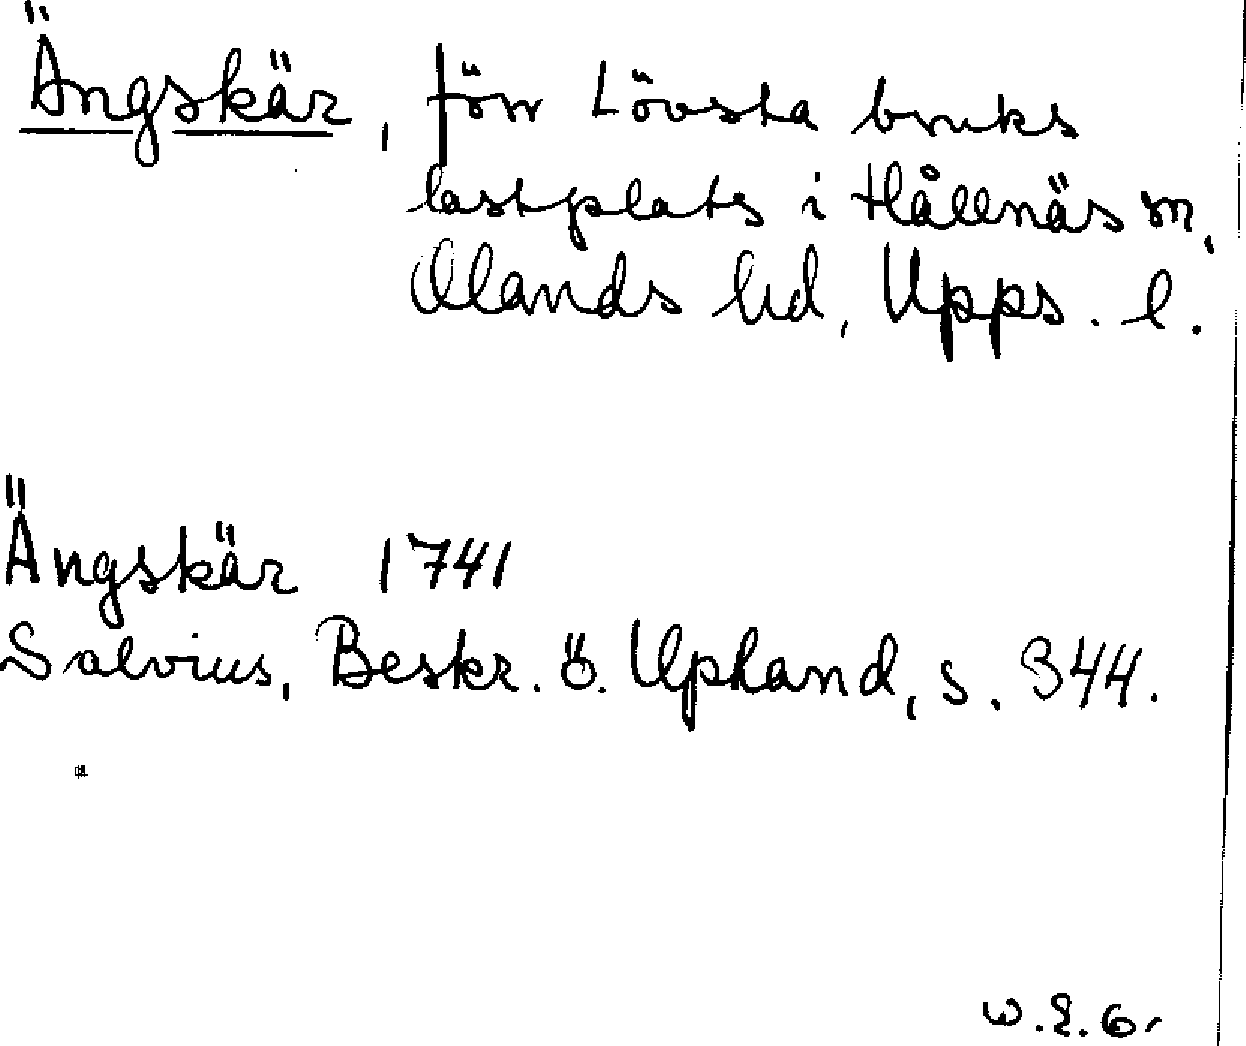 Ängskär, förr Lövsta bruks
lastplats i Hållnäs sn,
Olands hd, Upps. l.
Ängskär 1741
Salvius, Beskr. ö. Upland, s. 344.